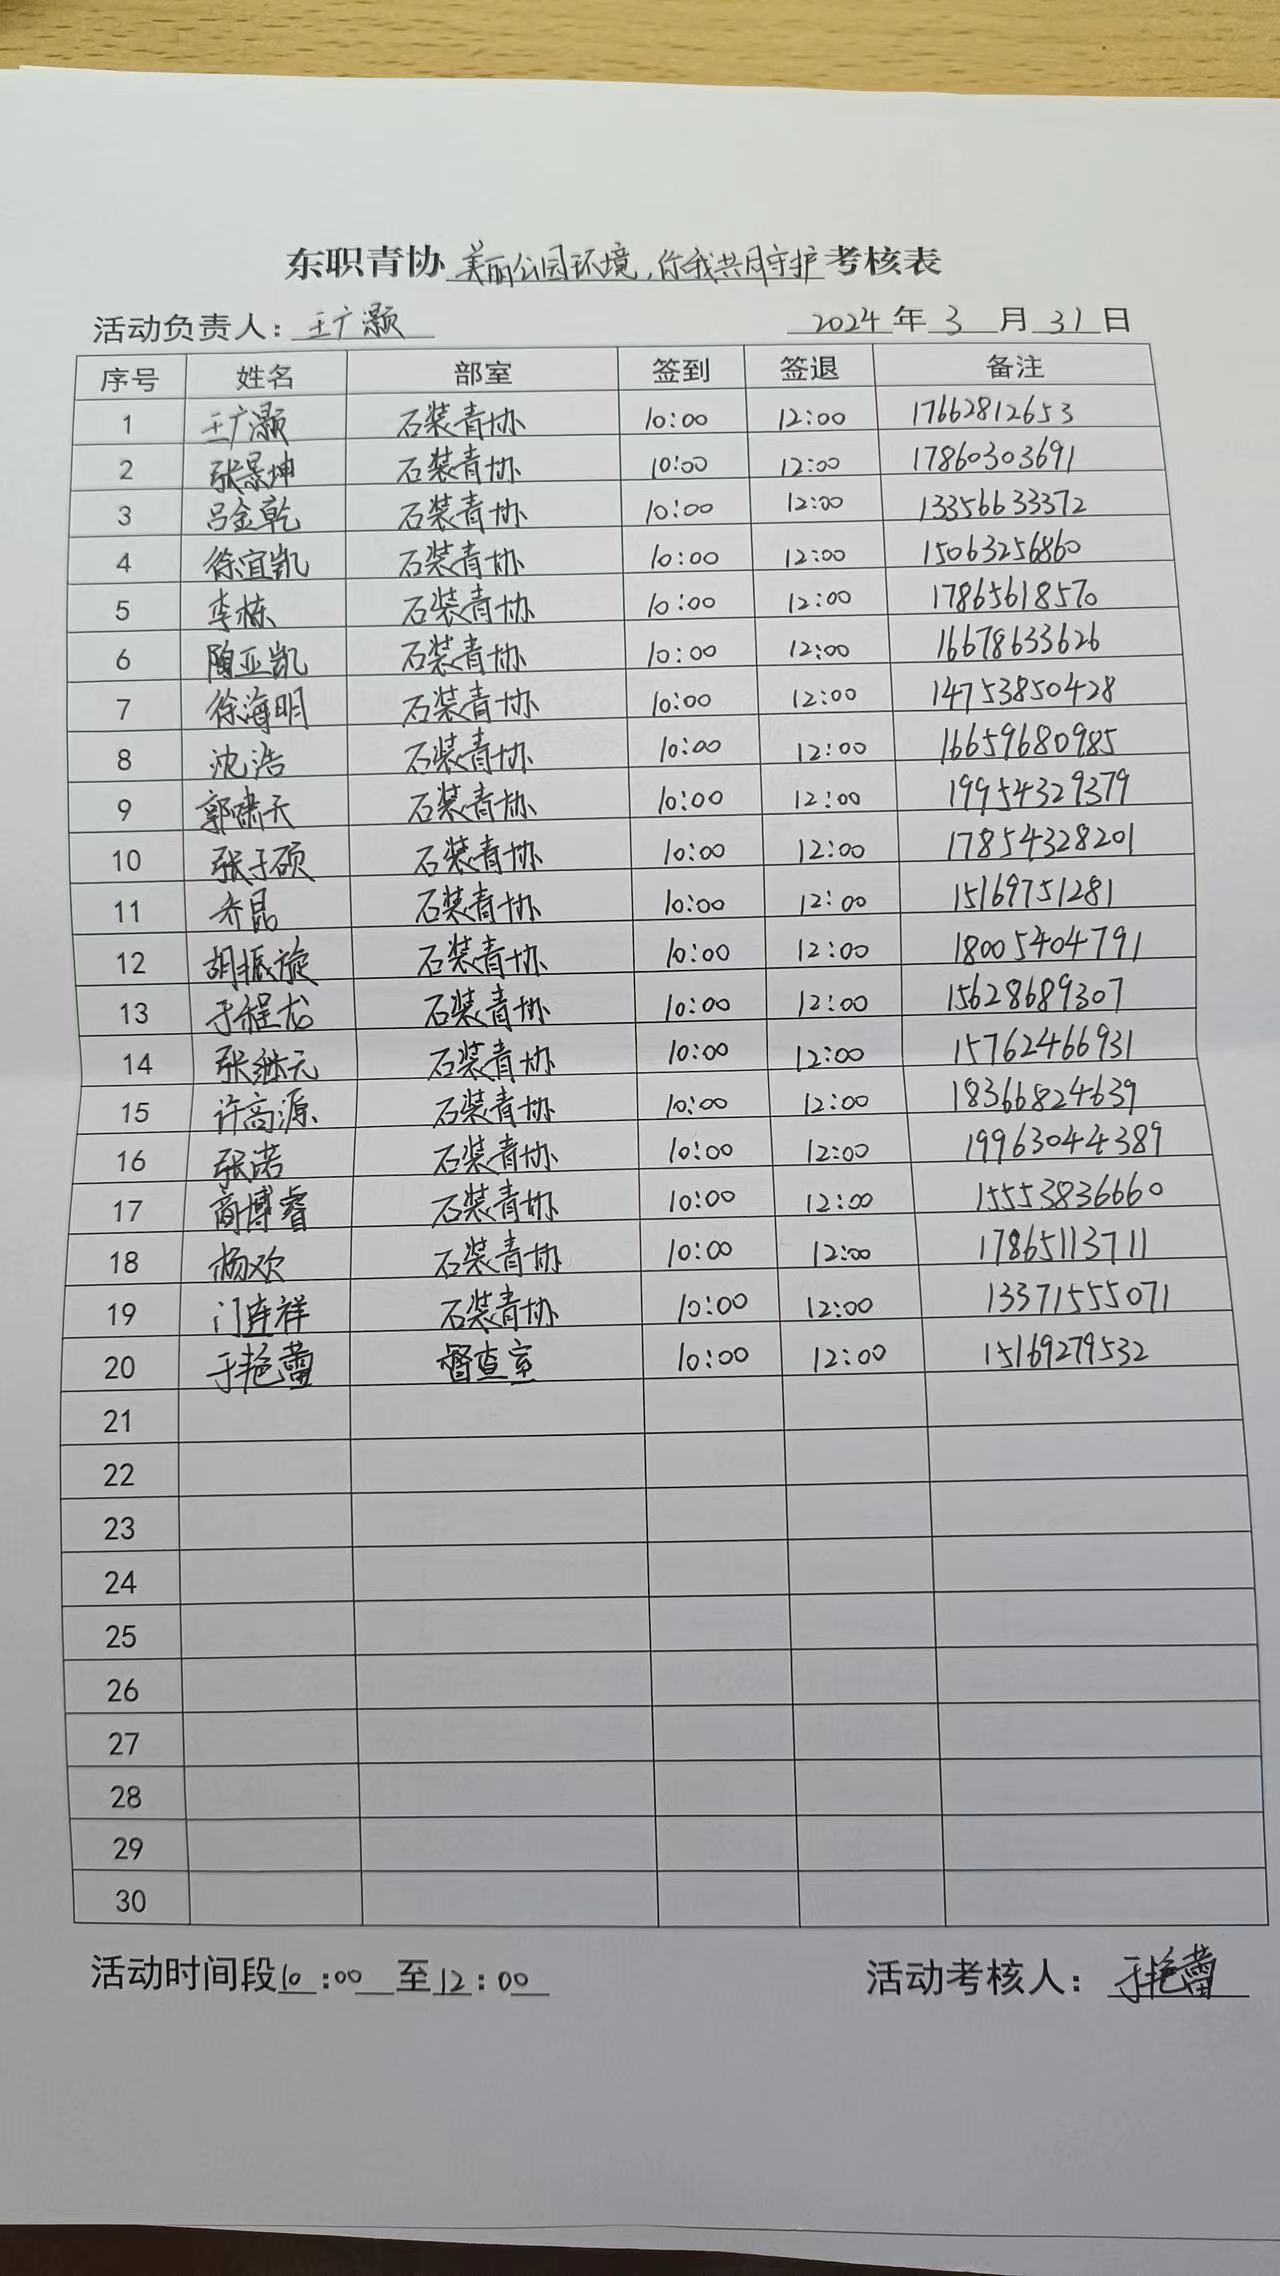 东职青协 美丽公园环境,你我共同守护 考核表
活动负责人: 王广灏 2024 年 3 月 31 日
序号 姓名 部室 签到 签退 备注
1 王广灏 石装青协 10:00 12:00 17662812653
2 张景坤 石装青协 10:00 12:00 17860303691
3 吕金乾 石装青协 10:00 12:00 13356633372
4 徐宜凯 石装青协 10:00 12:00 15063256860
5 李栋 石装青协 10:00 12:00 17865618570
6 陶亚凯 石装青协 10:00 12:00 16678633626
7 徐海明 石装青协 10:00 12:00 14753850428
8 沈浩 石装青协 10:00 12:00 16659680985
9 郭啸天 石装青协 10:00 12:00 19954329379
10 张子硕 石装青协 10:00 12:00 17854328201
11 乔晶 石装青协 10:00 12:00 15169751281
12 胡振旋 石装青协 10:00 12:00 18005404791
13 于程龙 石装青协 10:00 12:00 15628689307
14 张继元 石装青协 10:00 12:00 15762466931
15 许高源 石装青协 10:00 12:00 18366824639
16 张诺 石装青协 10:00 12:00 19963044389
17 商博睿 石装青协 10:00 12:00 15553836660
18 杨欢 石装青协 10:00 12:00 17865113711
19 门连祥 石装青协 10:00 12:00 13371555071
20 于艳蕾 督查室 10:00 12:00 15169279532
21
22
23
24
25
26
27
28
29
30
活动时间段10:00至12:00 活动考核人: 于艳蕾